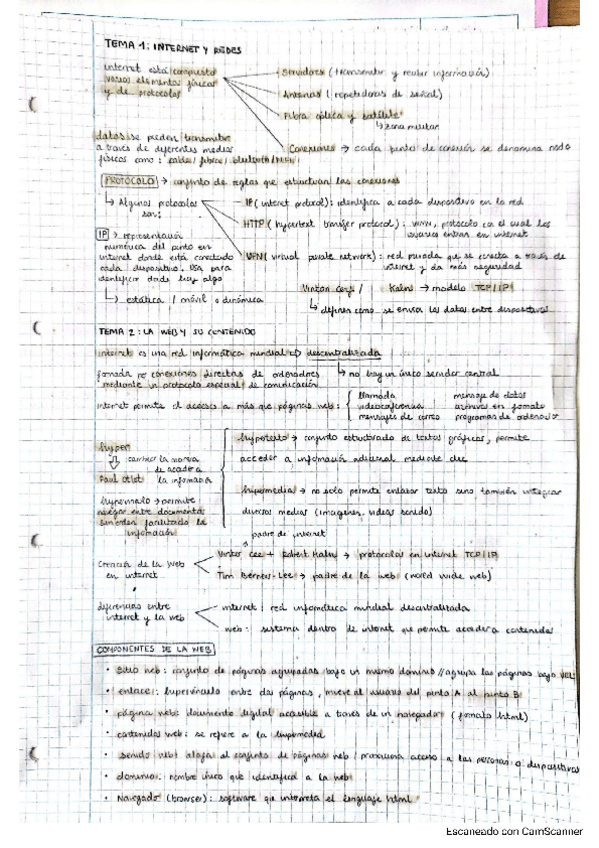 TEMA 1: INTERNET Y REDES
internet está compuesto
varios elementos físicos
y de protocolos
Servidores (transmitir y recibir información)
Antenas (repetidores de señal)
Fibra óptica y satélite
↳ zona militar
Conexiones → cada punto de conexión se denomina nodo
datos se pueden transmitir
a través de diferentes medios
físicos como: cables / fibra / bluetooth / WIFI
PROTOCOLO → conjunto de reglas que estructuran las conexiones
↳ Algunos protocolos
son:
IP (internet protocol): identifica a cada dispositivo en la red
HTTP (hypertext transfer protocol): WWW, protocolo con el cual los
usuarios entran en internet
VPN (virtual private network): red privada que se conecta a través de
internet y da más seguridad
IP → representación
numérica del punto en
internet donde está conectado
cada dispositivo. Usa para
identificar donde hay algo
↳ estática / móvil o dinámica
Vinton Cerf / Kahn → modelo TCP/IP
↳ definen como se envía los datos entre dispositivos
TEMA 2: LA WEB Y SU CONTENIDO
internet es una red informática mundial descentralizada
↳ no hay un único servidor central
formada por conexiones directas de ordenadores
mediante un protocolo especial de comunicación
internet permite el acceso a más que páginas web:
llamada
videoconferencia
mensajes de correo
mensaje de datos
archivos en formato
programas de ordenador
hyper
cambiar la manera
de acceder a
la información
Paul Otlet
hipervínculo → permite
navegar entre documentos
sin orden facilitado la
información
hipertexto → conjunto estructurado de textos gráficos, permite
acceder a información adicional mediante clic
hipermedia → no solo permite enlazar texto sino también integrar
diversos medios (imágenes, videos sonido)
padre de internet
Creación de la web
en internet
Vinton Cee + Robert Kahn → protocolos en internet TCP/IP
Tim Berners-Lee → padre de la web (world wide web)
diferencias entre
internet y la web
internet: red informática mundial descentralizada
web: sistema dentro de internet que permite acceder a contenidos
COMPONENTES DE LA WEB
• Sitio web: conjunto de páginas agrupadas bajo un mismo dominio // agrupa las páginas bajo URL
• enlace: hipervínculo entre dos páginas, mueve al usuario del punto A al punto B
• página web: documento digital accesible a través de un navegador (formato html)
• contenidos web: se refiere a la hipermedia
• servidor web: alojar al conjunto de páginas web / proporciona acceso a las personas o dispositivos
• dominio: nombre único que identifica a la web
• Navegador (browser): software que interpreta el lenguaje html
Escaneado con CamScanner